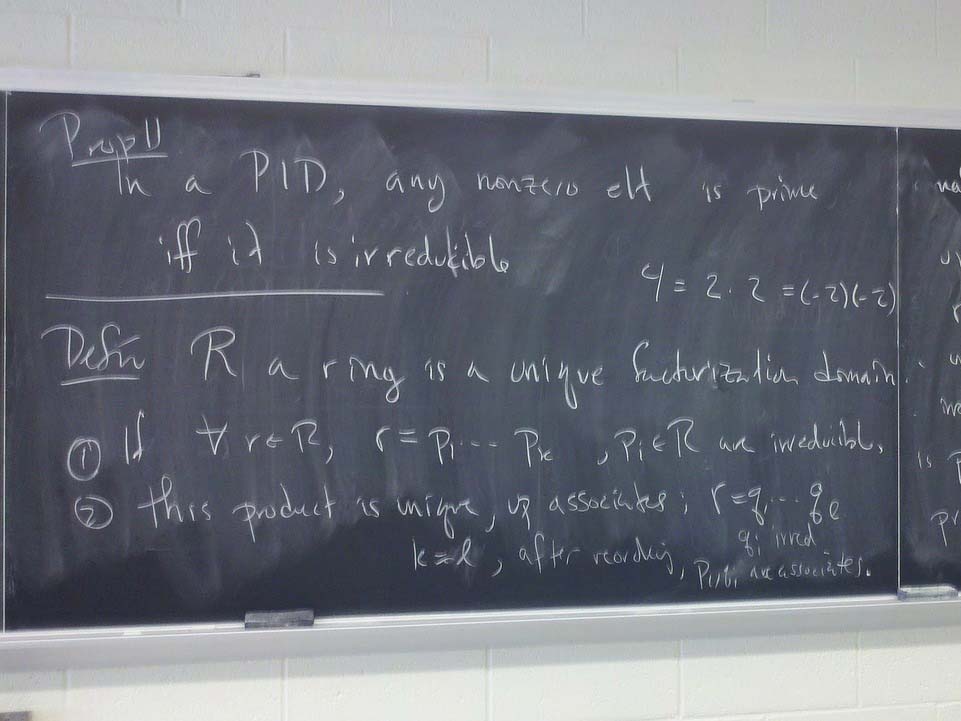 Prop 11
In a PID, any nonzero elt is prime
iff it is irreducible
4 = 2 · 2 = (-2)(-2)
Defn R a ring is a unique factorization domain
① If ∀ r ∈ R, r = p₁ ⋯ pₖ , pᵢ ∈ R are irreducible,
② this product is unique, up associates; r = q₁ ⋯ qₑ
qᵢ irred
k = l, after reording, pᵢ, qᵢ are associates.
is